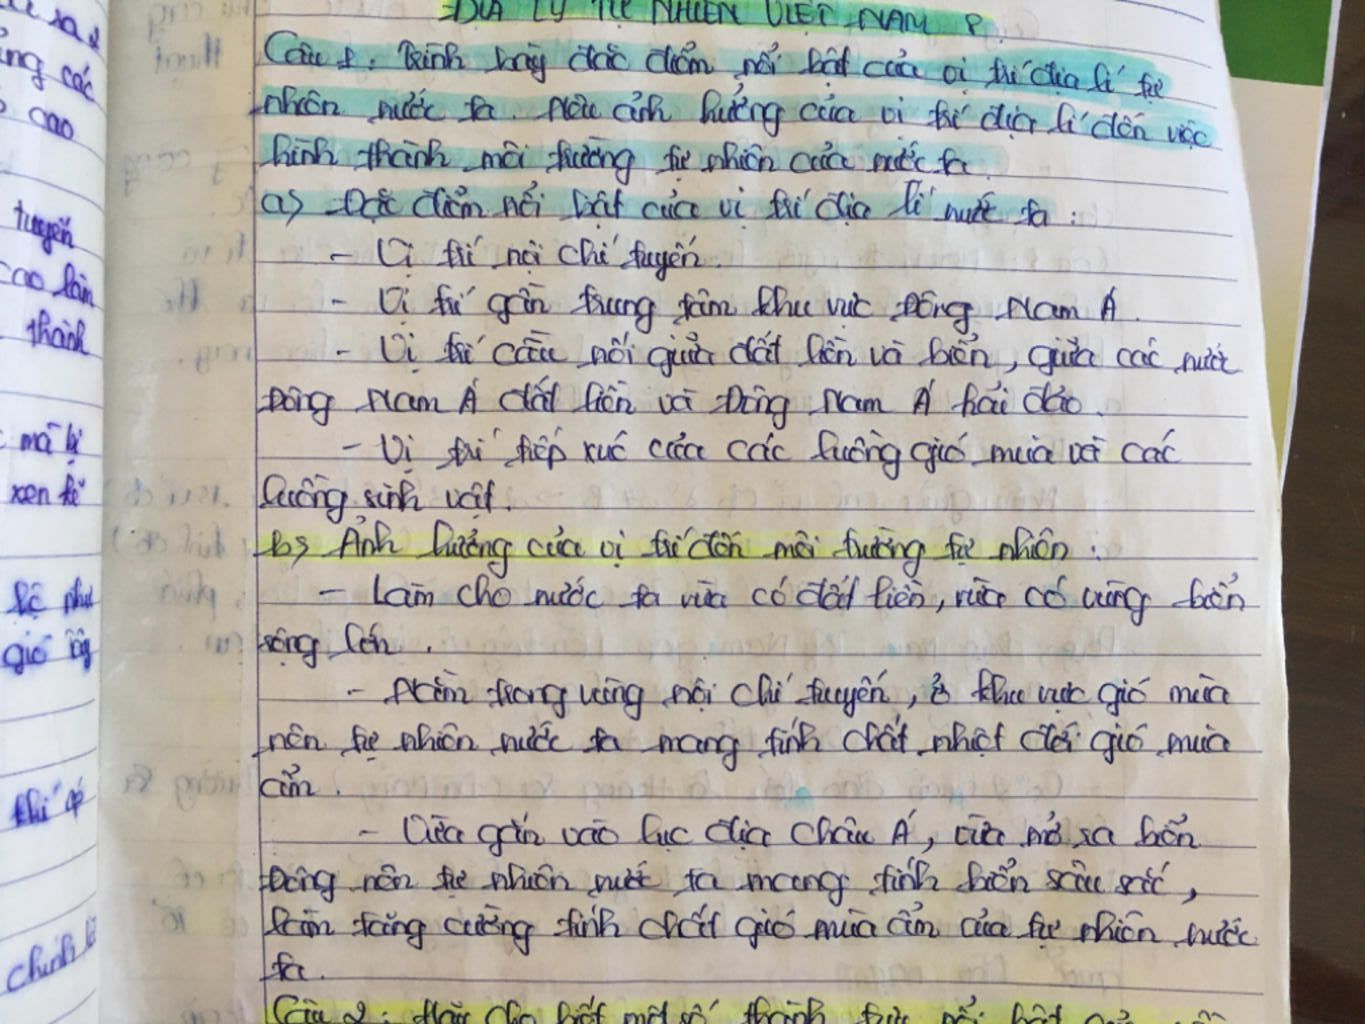 ĐỊA LÝ TỰ NHIÊN VIỆT NAM 8
Câu 1: Trình bày đặc điểm nổi bật của vị trí địa lí tự
nhiên nước ta. Nêu ảnh hưởng của vị trí địa lí đến việc
hình thành môi trường tự nhiên của nước ta.
a) Đặc điểm nổi bật của vị trí địa lí nước ta:
- Vị trí nội chí tuyến.
- Vị trí gần trung tâm khu vực Đông Nam Á.
- Vị trí cầu nối giữa đất liền và biển, giữa các nước
Đông Nam Á đất liền và Đông Nam Á hải đảo.
- Vị trí tiếp xúc của các luồng gió mùa và các
luồng sinh vật.
b) Ảnh hưởng của vị trí đến môi trường tự nhiên:
- Làm cho nước ta vừa có đất liền, vừa có vùng biển
rộng lớn.
- Nằm trong vùng nội chí tuyến, ở khu vực gió mùa
nên tự nhiên nước ta mang tính chất nhiệt đới gió mùa
ẩm.
- Vừa gắn vào lục địa châu Á, vừa mở ra biển
Đông nên tự nhiên nước ta mang tính biển sâu sắc,
làm tăng cường tính chất gió mùa ẩm của tự nhiên nước
ta.
Câu 2: Hãy cho biết một số thành tựu nổi bật
ng các
cao
tuyến
cao làm
thành
mà bị
xen kẽ
như
gió
khí áp
chính